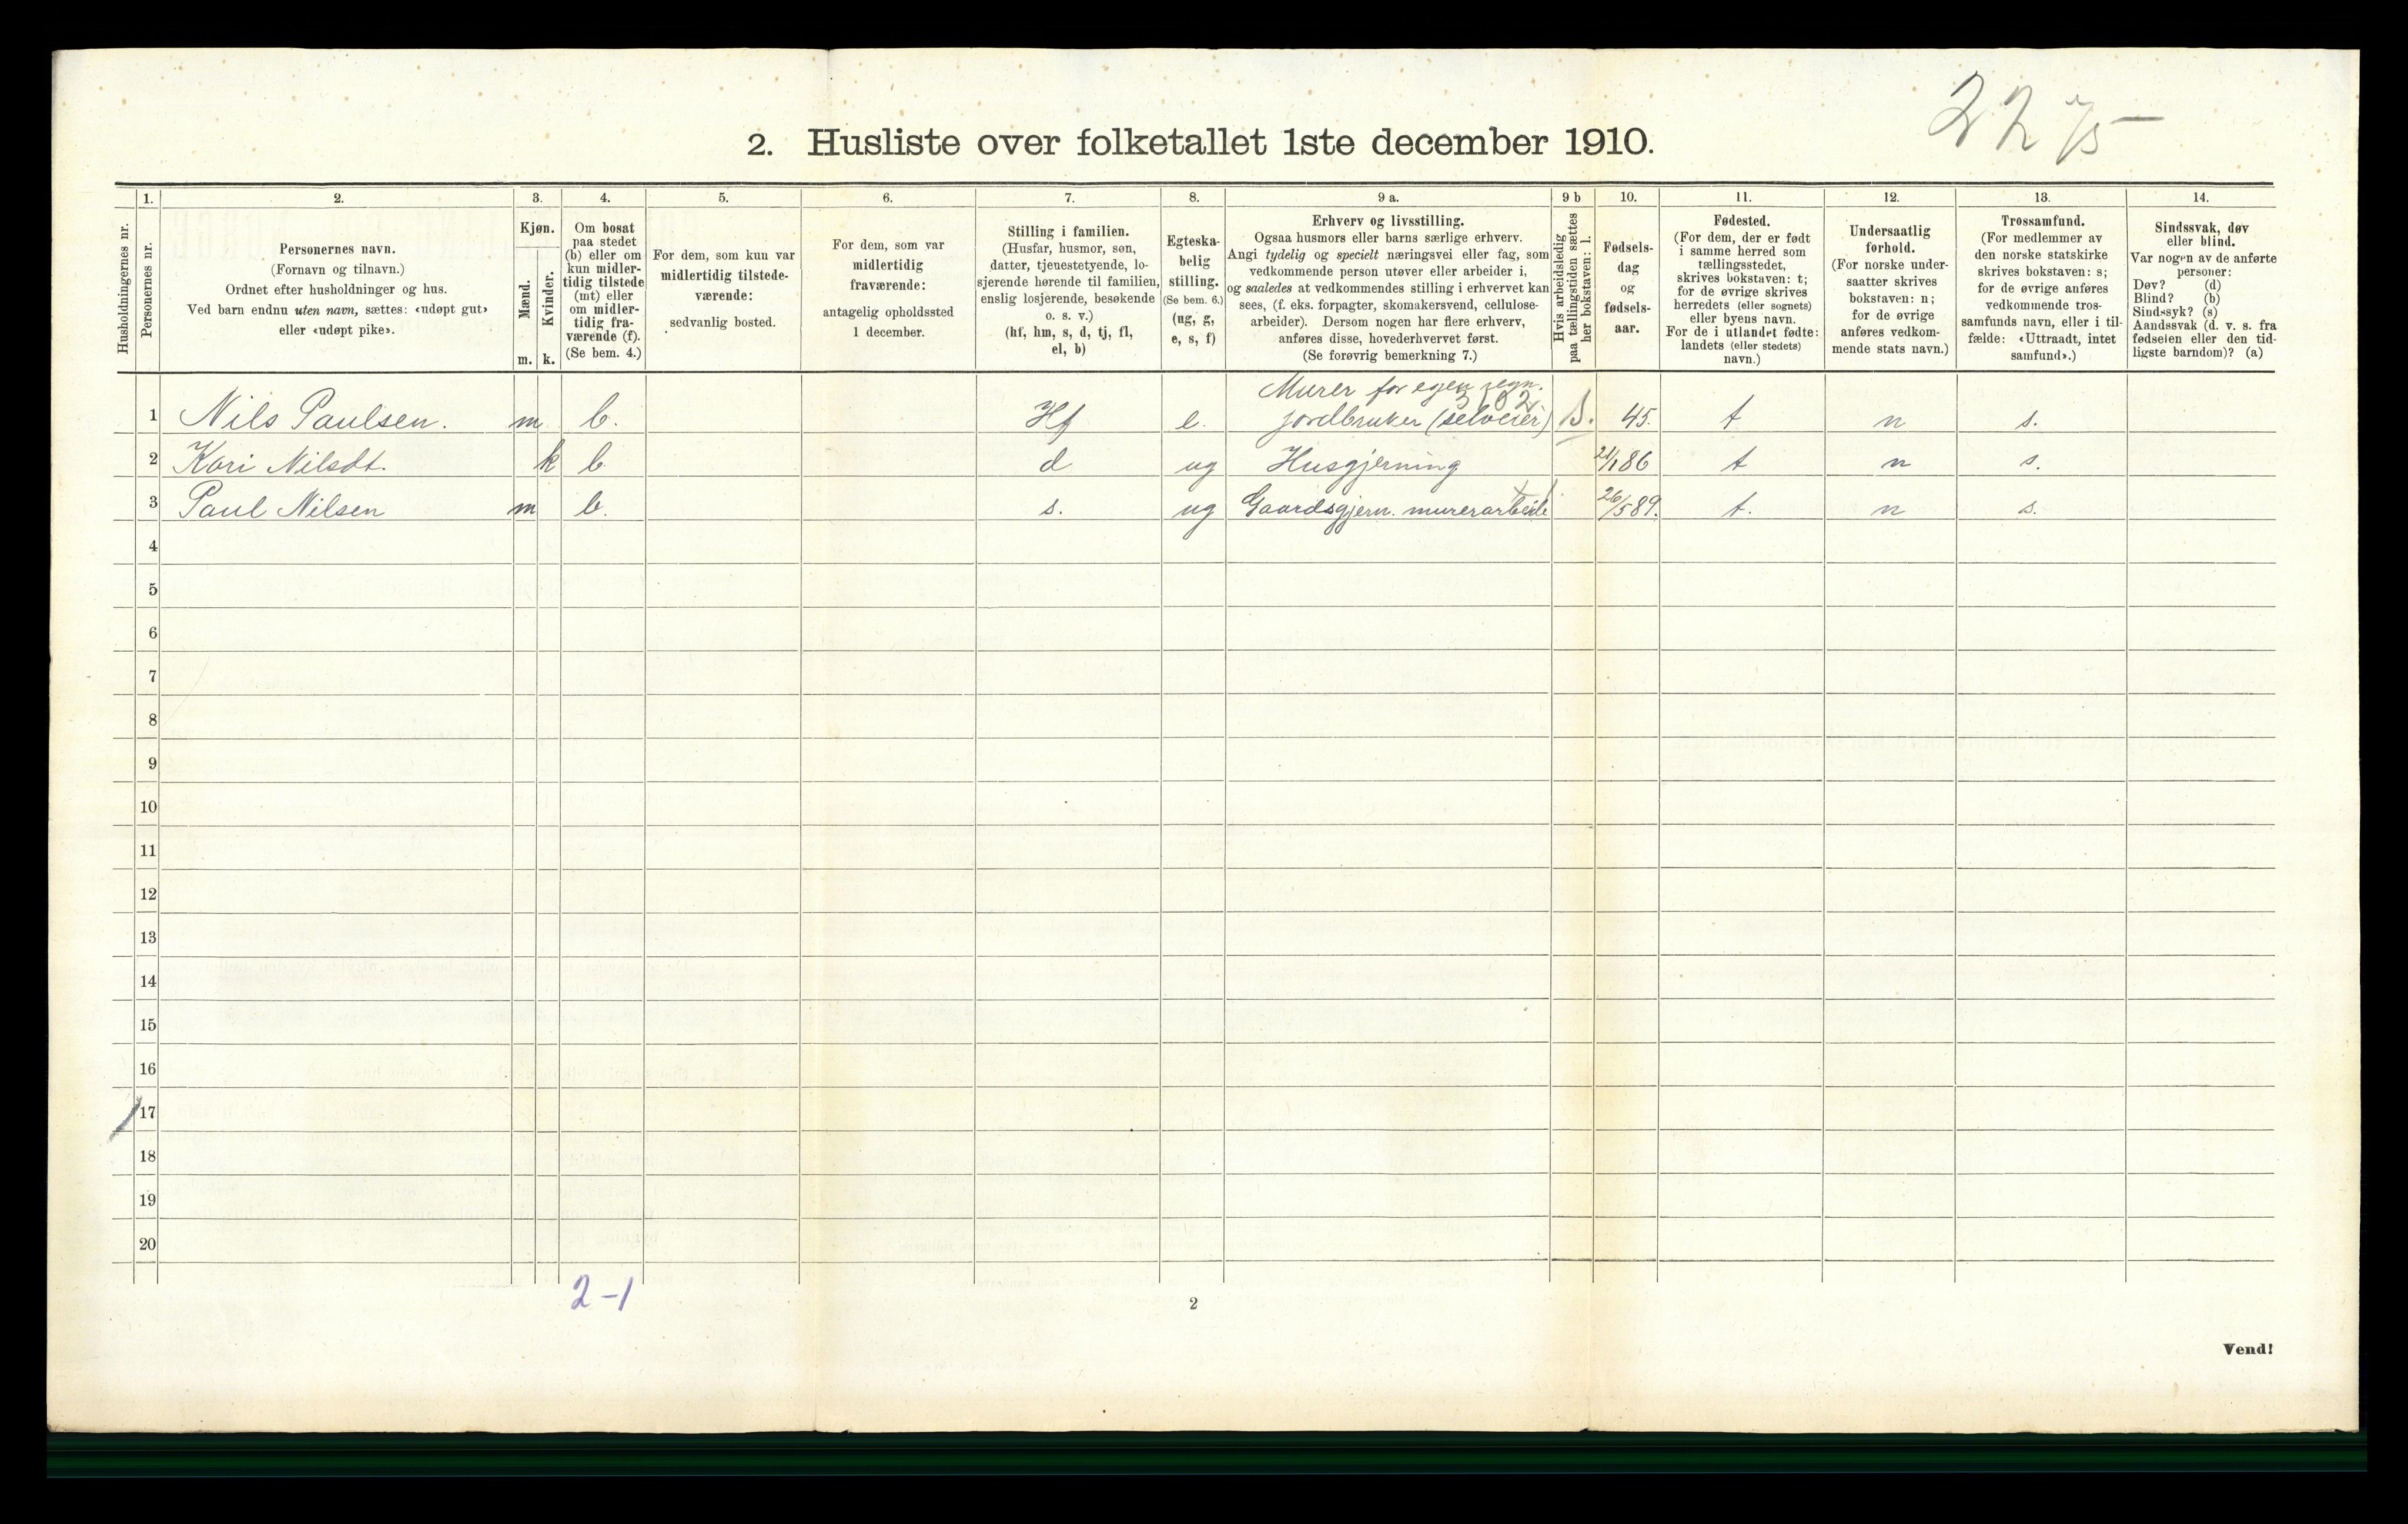 22 75
2. Husliste over folketallet 1ste december 1910.
1. 2. 3. 4. 5. 6. 7. 8. 9 a. 9 b 10. 11. 12. 13. 14.
Husholdningernes nr.
Personernes nr.
Personernes navn.
(Fornavn og tilnavn.)
Ordnet efter husholdninger og hus.
Ved barn endnu uten navn, sættes: «udøpt gut»
eller «udøpt pike».
Kjøn.
Mænd.
Kvinder.
m. k.
Om bosat
paa stedet
(b) eller om
kun midler-
tidig tilstede
(mt) eller
om midler-
tidig fra-
værende (f).
(Se bem. 4.)
For dem, som kun var
midlertidig tilstede-
værende:
sedvanlig bosted.
For dem, som var
midlertidig
fraværende:
antagelig opholdssted
1 december.
Stilling i familien.
(Husfar, husmor, søn,
datter, tjenestetyende, lo-
sjerende hørende til familien,
enslig losjerende, besøkende
o. s. v.)
(hf, hm, s, d, tj, fl,
el, b)
Egteska-
belig
stilling.
(Se bem. 6.)
(ug, g,
e, s, f)
Erhverv og livsstilling.
Ogsaa husmors eller barns særlige erhverv.
Angi tydelig og specielt næringsvei eller fag, som
vedkommende person utøver eller arbeider i,
og saaledes at vedkommendes stilling i erhvervet kan
sees, (f. eks. forpagter, skomakersvend, cellulose-
arbeider). Dersom nogen har flere erhverv,
anføres disse, hovederhvervet først.
(Se forøvrig bemerkning 7.)
Hvis arbeidsledig
paa tællingstiden sættes
her bokstaven: l.
Fødsels-
dag
og
fødsels-
aar.
Fødested.
(For dem, der er født
i samme herred som
tællingsstedet,
skrives bokstaven: t;
for de øvrige skrives
herredets (eller sognets)
eller byens navn.
For de i utlandet fødte:
landets (eller stedets)
navn.)
Undersaatlig
forhold.
(For norske under-
saatter skrives
bokstaven: n;
for de øvrige
anføres vedkom-
mende stats navn.)
Trossamfund.
(For medlemmer av
den norske statskirke
skrives bokstaven: s;
for de øvrige anføres
vedkommende tros-
samfunds navn, eller i til-
fælde: «Uttraadt, intet
samfund».)
Sindssvak, døv
eller blind.
Var nogen av de anførte
personer:
Døv? (d)
Blind? (b)
Sindssyk? (s)
Aandssvak (d. v. s. fra
fødselen eller den tid-
ligste barndom)? (a)
Murer for egen regn.
1 Nils Paulsen. m b. Hf e. jordbruker (selveier) B. 45. t n s.
2 Kari Nilsdt. k b d ug Husgjerning 21/1 86 t n s.
3 Paul Nilsen m b. s. ug Gaardsgjern. murerarbeide 26/5 89. t. n s.
4
5
6
7
8
9
10
11
12
13
14
15
16
17
18
19
20
2-1
2
Vend!